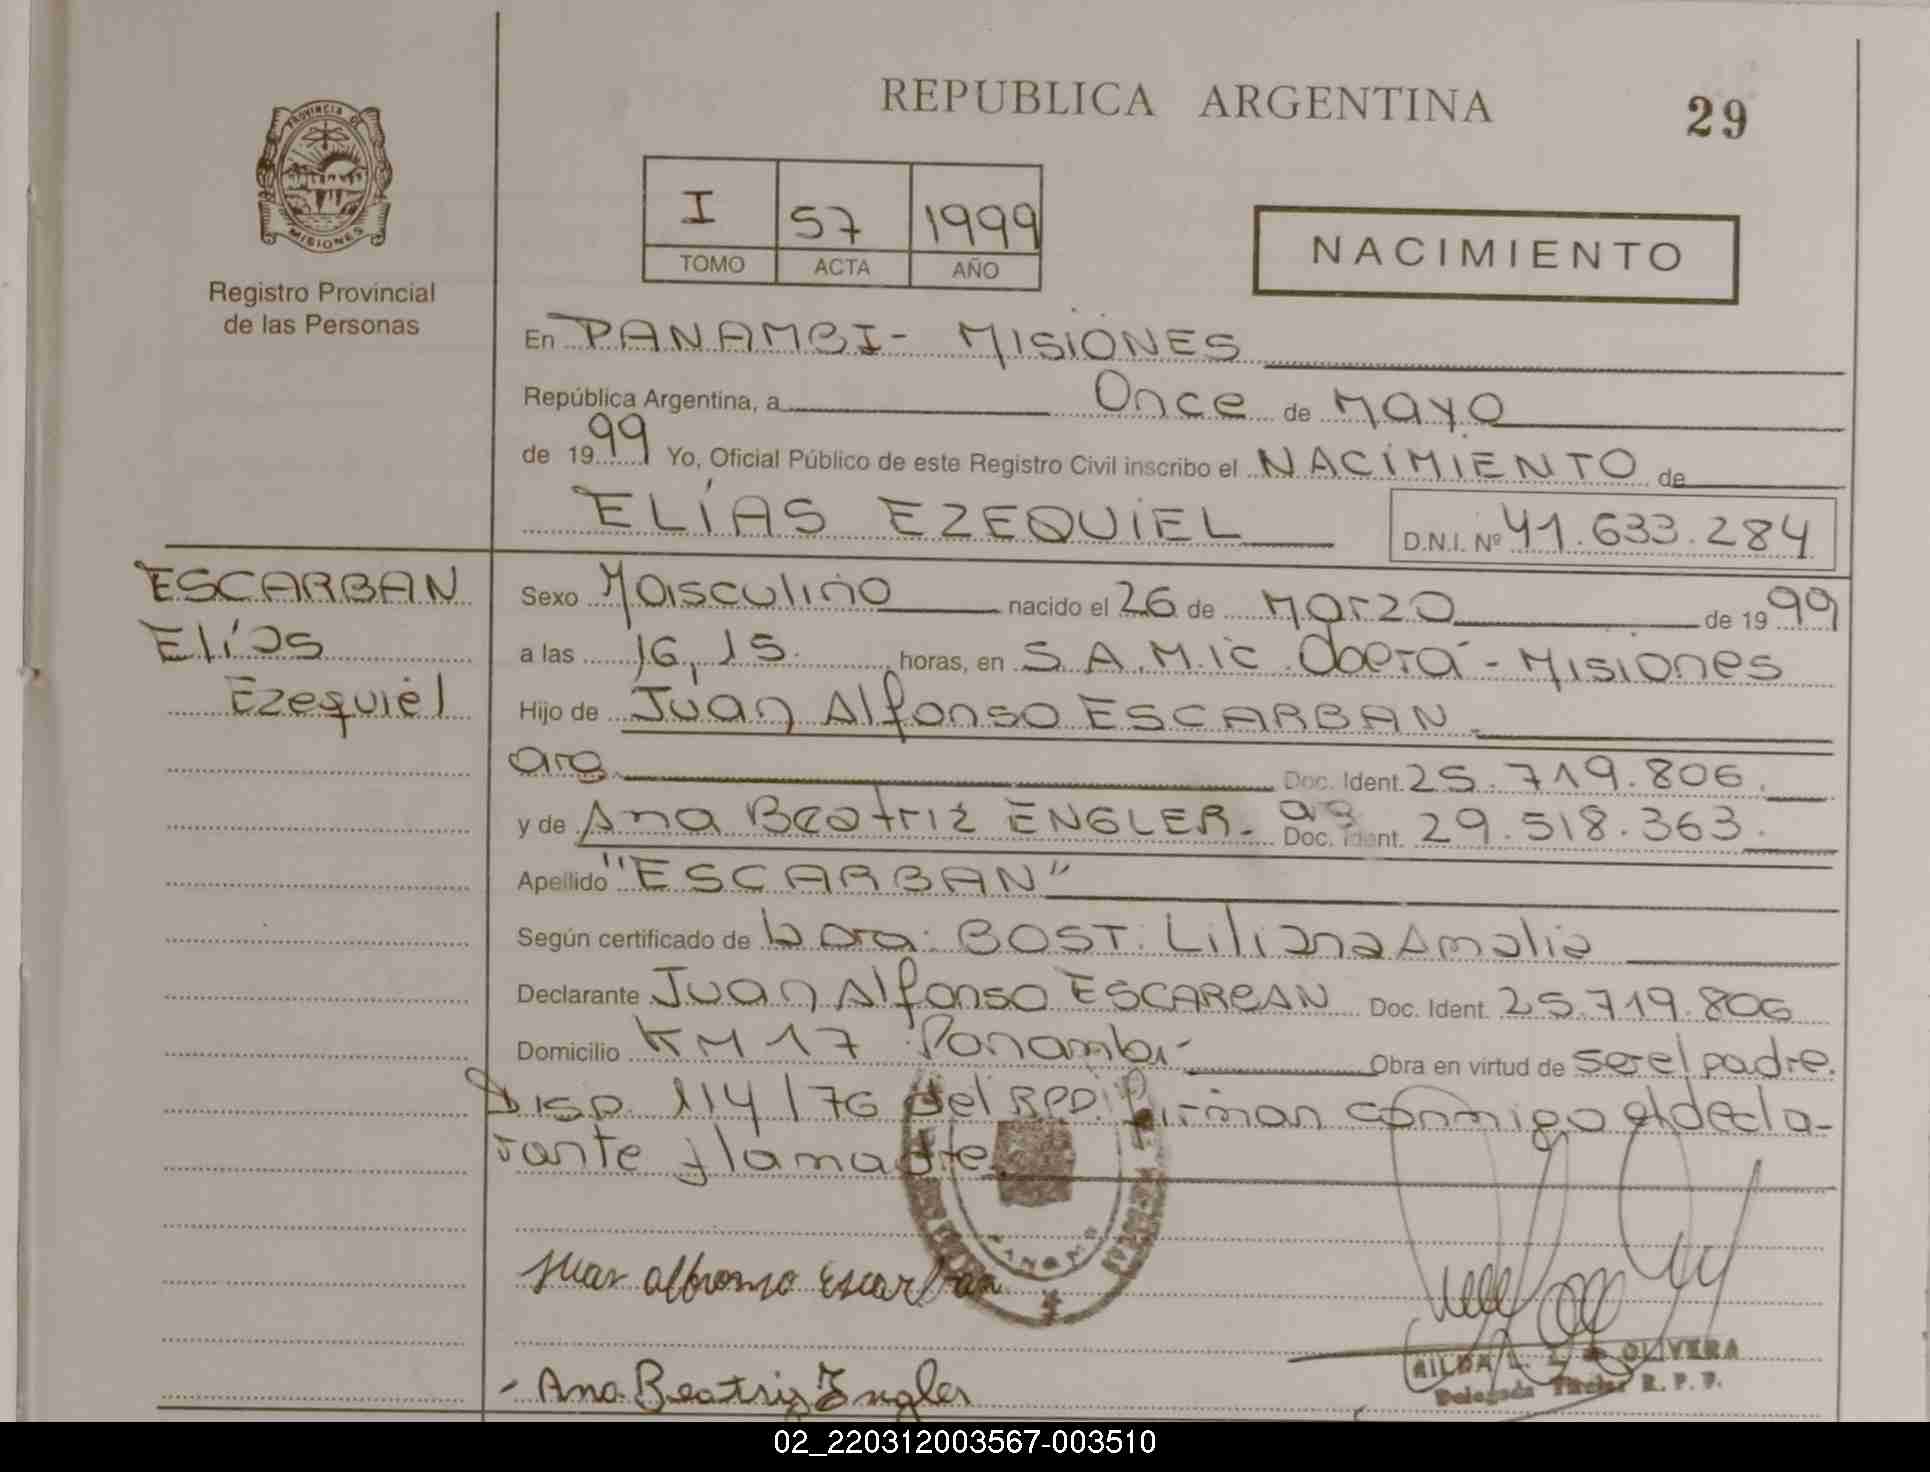 REPUBLICA ARGENTINA
29
PROVINCIA DE
MISIONES
Registro Provincial
de las Personas
I 57 1999
TOMO ACTA AÑO
NACIMIENTO
En PANAMBI - MISIONES
República Argentina, a Once de Mayo
de 1999 Yo, Oficial Público de este Registro Civil inscribo el NACIMIENTO de
ELÍAS EZEQUIEL D.N.I. Nº 41.633.284
ESCARBAN
Elías
Ezequiel
Sexo Masculino nacido el 26 de Marzo de 1999
a las 16,15. horas, en S.A.M.ic Oberá - Misiones
Hijo de Juan Alfonso ESCARBAN
arg Doc. Ident. 25.719.806.
y de Ana Beatriz ENGLER - arg Doc. Ident. 29.518.363.
Apellido "ESCARBAN"
Según certificado de la Dra: BOST. Liliana Amalia
Declarante Juan Alfonso ESCARBAN Doc. Ident. 25.719.806
Domicilio KM 17 Panambí Obra en virtud de ser el padre.
Disp. 114/76 del R.P.P. firman conmigo el decla-
rante y la madre
Juan alfonso Escarban
OLIVERA
Delegada Titular R. P. P.
- Ana Beatriz Engler
02_220312003567-003510